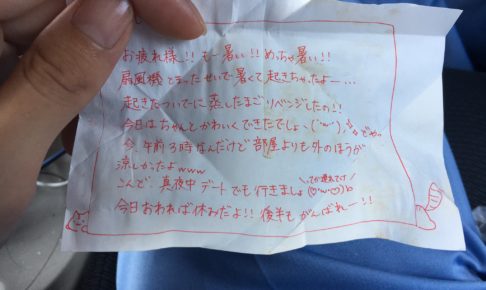 お疲れ様!! もー暑い!! めっちゃ暑い!!
扇風機 とまったせいで暑くて起きちゃったよー…
起きたついでに蒸したまごリベンジしたの!!
今日はちゃんとかわいくできたでしょ、(´・ω・`)
今、午前3時なんだけど部屋よりも外のほうが
涼しかったよwww
こんど、真夜中デートでも行きましょ
今日おわれば休みだよ!! 後半も がんばれー!!